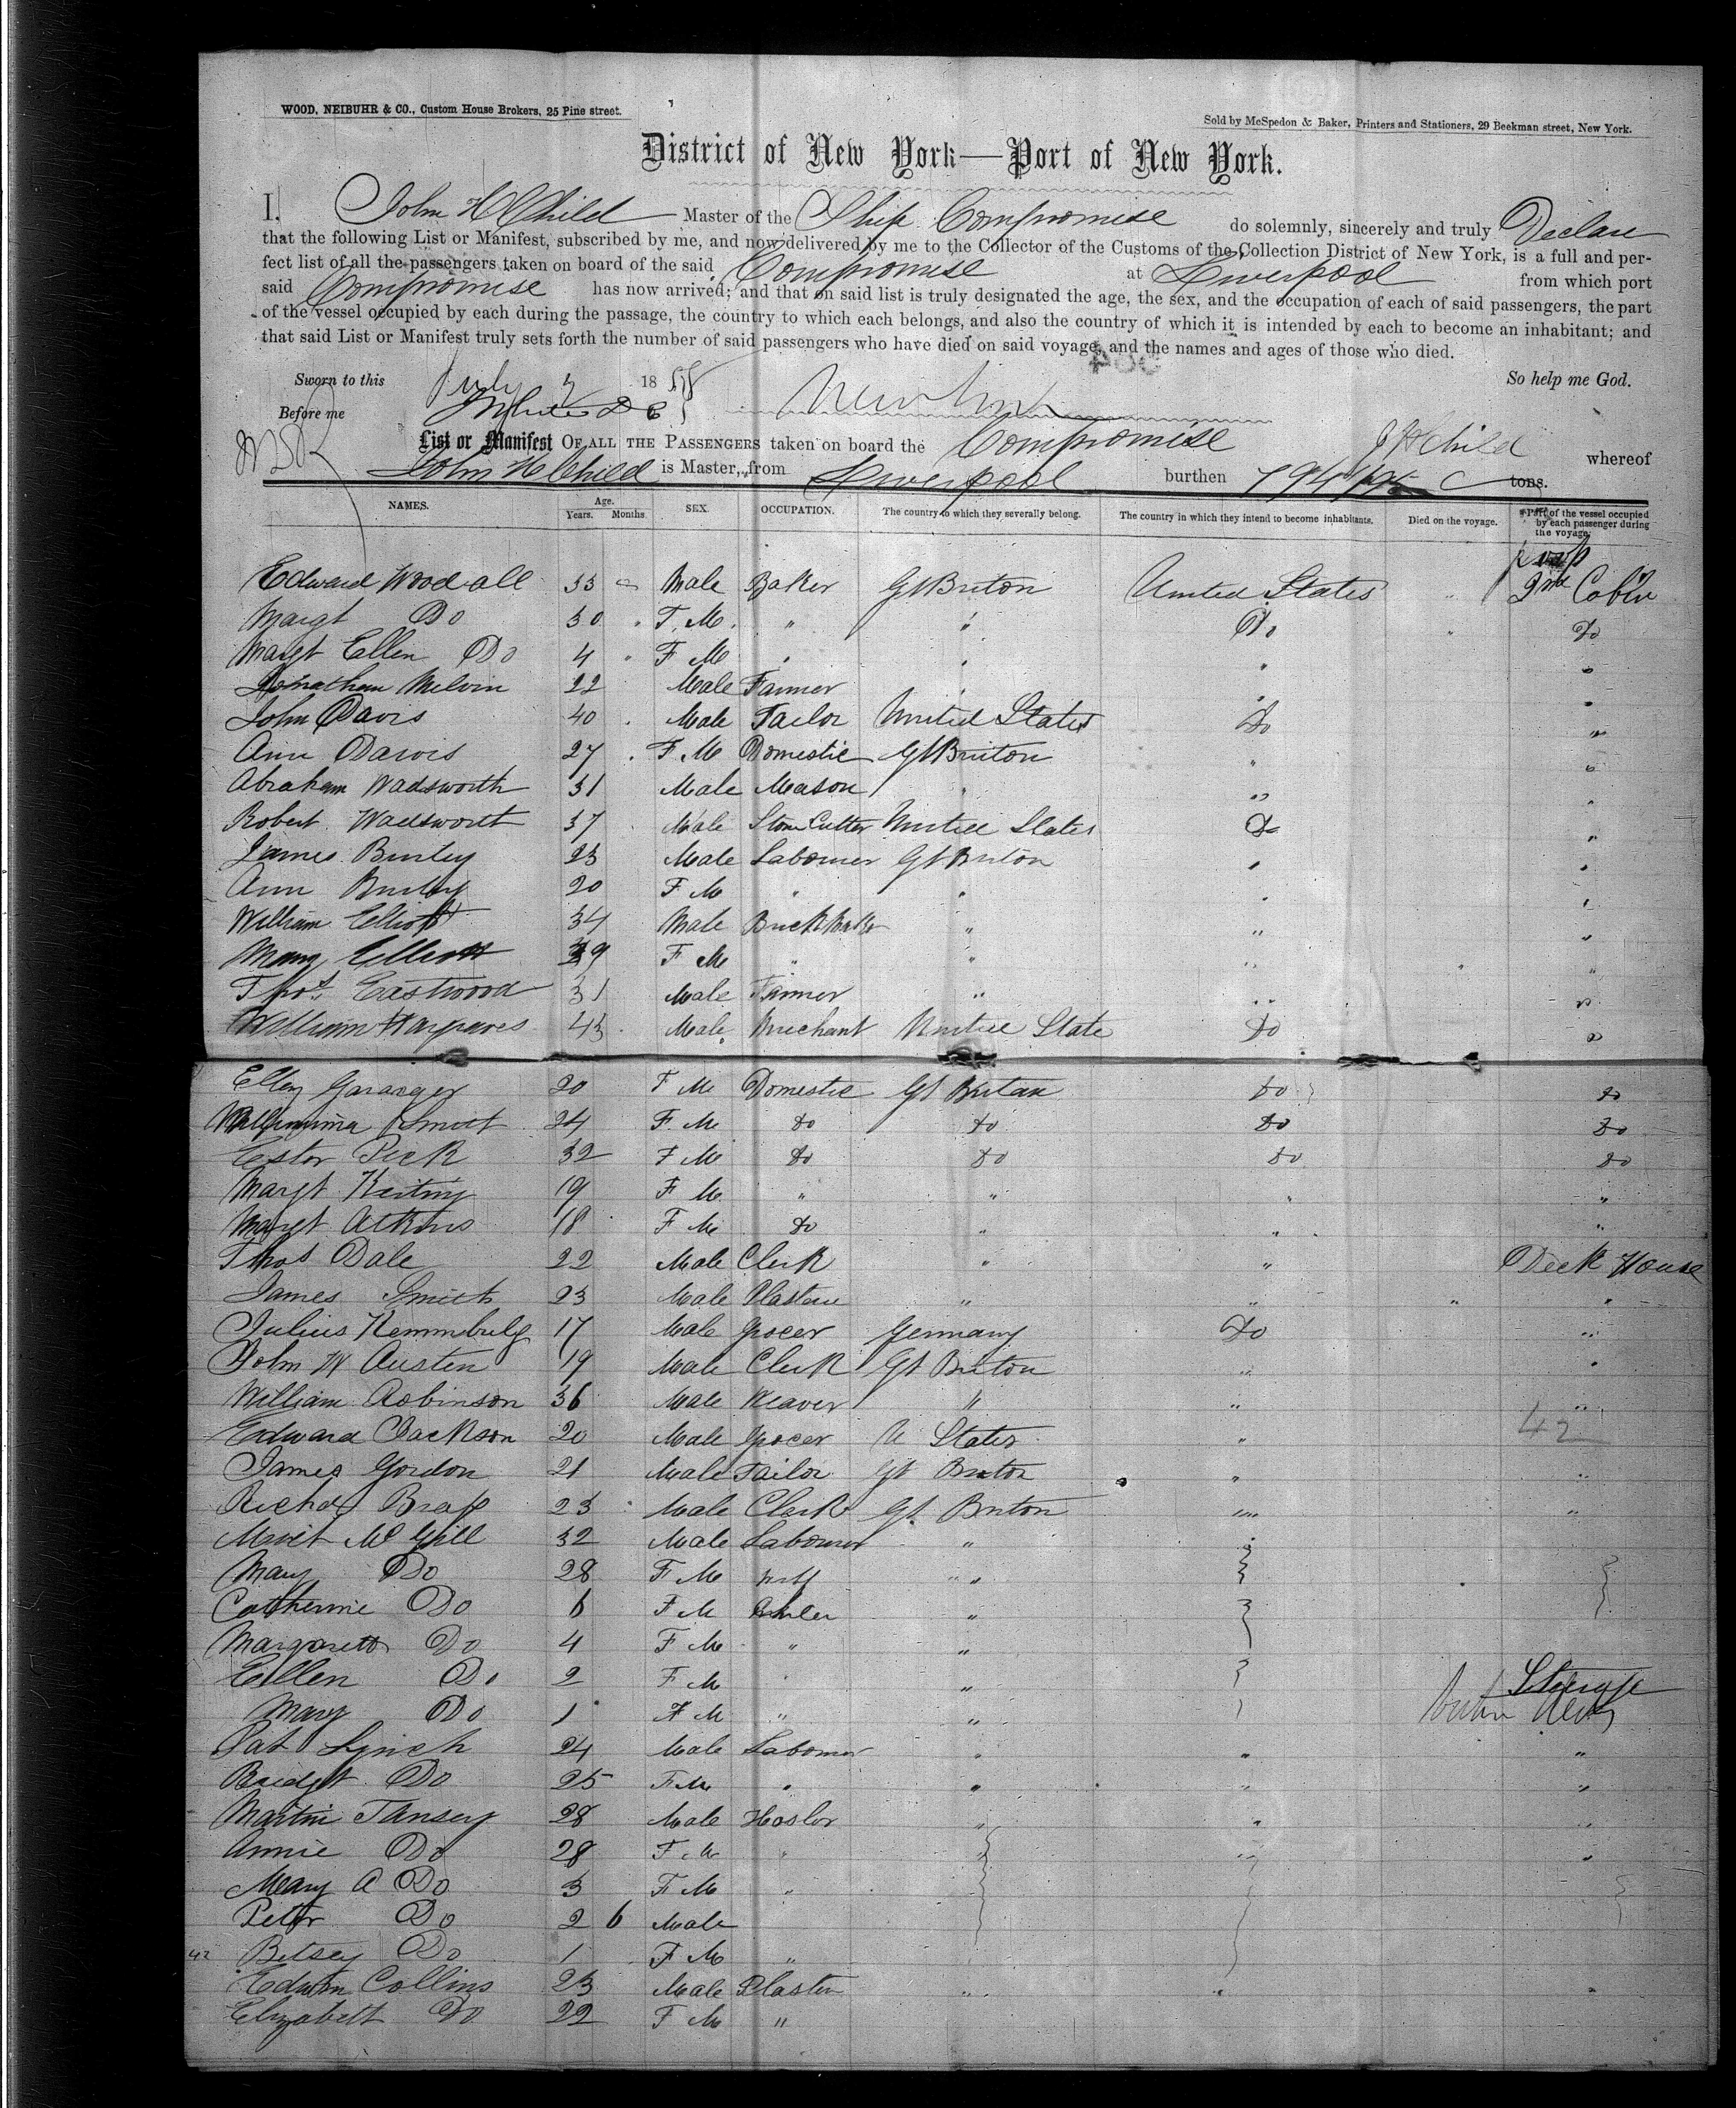 WOOD, NEIBUHR & CO., Custom House Brokers, 25 Pine street.
Sold by McSpedon & Baker, Printers and Stationers, 29 Beekman street, New York.
District of New York—Port of New York.
I, John H Child Master of the Ship Compromise do solemnly, sincerely and truly Declare
that the following List or Manifest, subscribed by me, and now delivered by me to the Collector of the Customs of the Collection District of New York, is a full and per-
fect list of all the passengers taken on board of the said Compromise at Liverpool from which port
said Compromise has now arrived; and that on said list is truly designated the age, the sex, and the occupation of each of said passengers, the part
of the vessel occupied by each during the passage, the country to which each belongs, and also the country of which it is intended by each to become an inhabitant; and
that said List or Manifest truly sets forth the number of said passengers who have died on said voyage, and the names and ages of those who died.
Sworn to this July 18 So help me God.
Before me
J H Child
List or Manifest OF ALL THE PASSENGERS taken on board the Compromise whereof
John H Child is Master, from Liverpool burthen tons.
NAMES. Age. Years. Months. SEX. OCCUPATION. The country to which they severally belong. The country in which they intend to become inhabitants. Died on the voyage. Part of the vessel occupied by each passenger during the voyage.
Edward Woodall 33 Male Baker Gt Briton United States 2nd Cabin
Margt Do 30 " F. M. " " Do Do
Margt Ellen Do 4 " F M " " " "
Jonathan Melvin 22 Male Farmer " " "
John Davis 40 Male Tailor United States Do "
Ann Davis 27 F M Domestic Gt Briton " "
Abraham Wadsworth 31 Male Mason " " "
Robert Wadsworth 37 Male Stone Cutter United States Do "
James Burley 23 Male Labourer Gt Briton " "
Ann Burley 20 F M " " " "
William Elliott 34 Male " " "
Mary Elliott 29 F M " " " "
Thos Eastwood 31 Male Farmer " " "
William Hargraves 43 Male Merchant United State Do "
Ellen 20 F M Domestic Gt Britan Do Do
24 F. M. Do Do Do Do
Ester Peck 32 F M Do Do Do Do
Margt Keating 19 F M " " " "
Margt Atkins 18 F M Do " " "
Thos Dale 22 Male Clerk " " Deck House
James Smith 23 Male " " "
Julius 17 Male Grocer Germany Do "
John W Austen 19 Male Clerk Gt Briton " "
William Robinson 36 Male Weaver " " "
42
Edward Jackson 20 Male Grocer U States "
James Gordon 21 Male Tailor Gt Briton " "
Richd 23 Male Clerk Gt Briton " "
McGill 32 Male Labourer " "
Mary Do 28 F M Wife "
Catherine Do 6 F M "
Margarett Do 4 F M " "
Ellen Do 2 F M " "
Steerage
Mary Do 1 F M " "
Pat Lynch 24 Male Labourer " " "
Bridgt Do 25 F M " " " "
Martin Tansey 28 Male Hoslor " " "
Annie Do 28 F M " " " "
Mary A Do 3 F M "
Peter Do 2 6 Male
42 Betsey Do 1 F M "
Edwin Collins 23 Male " " "
Elizabett Do 22 F M "